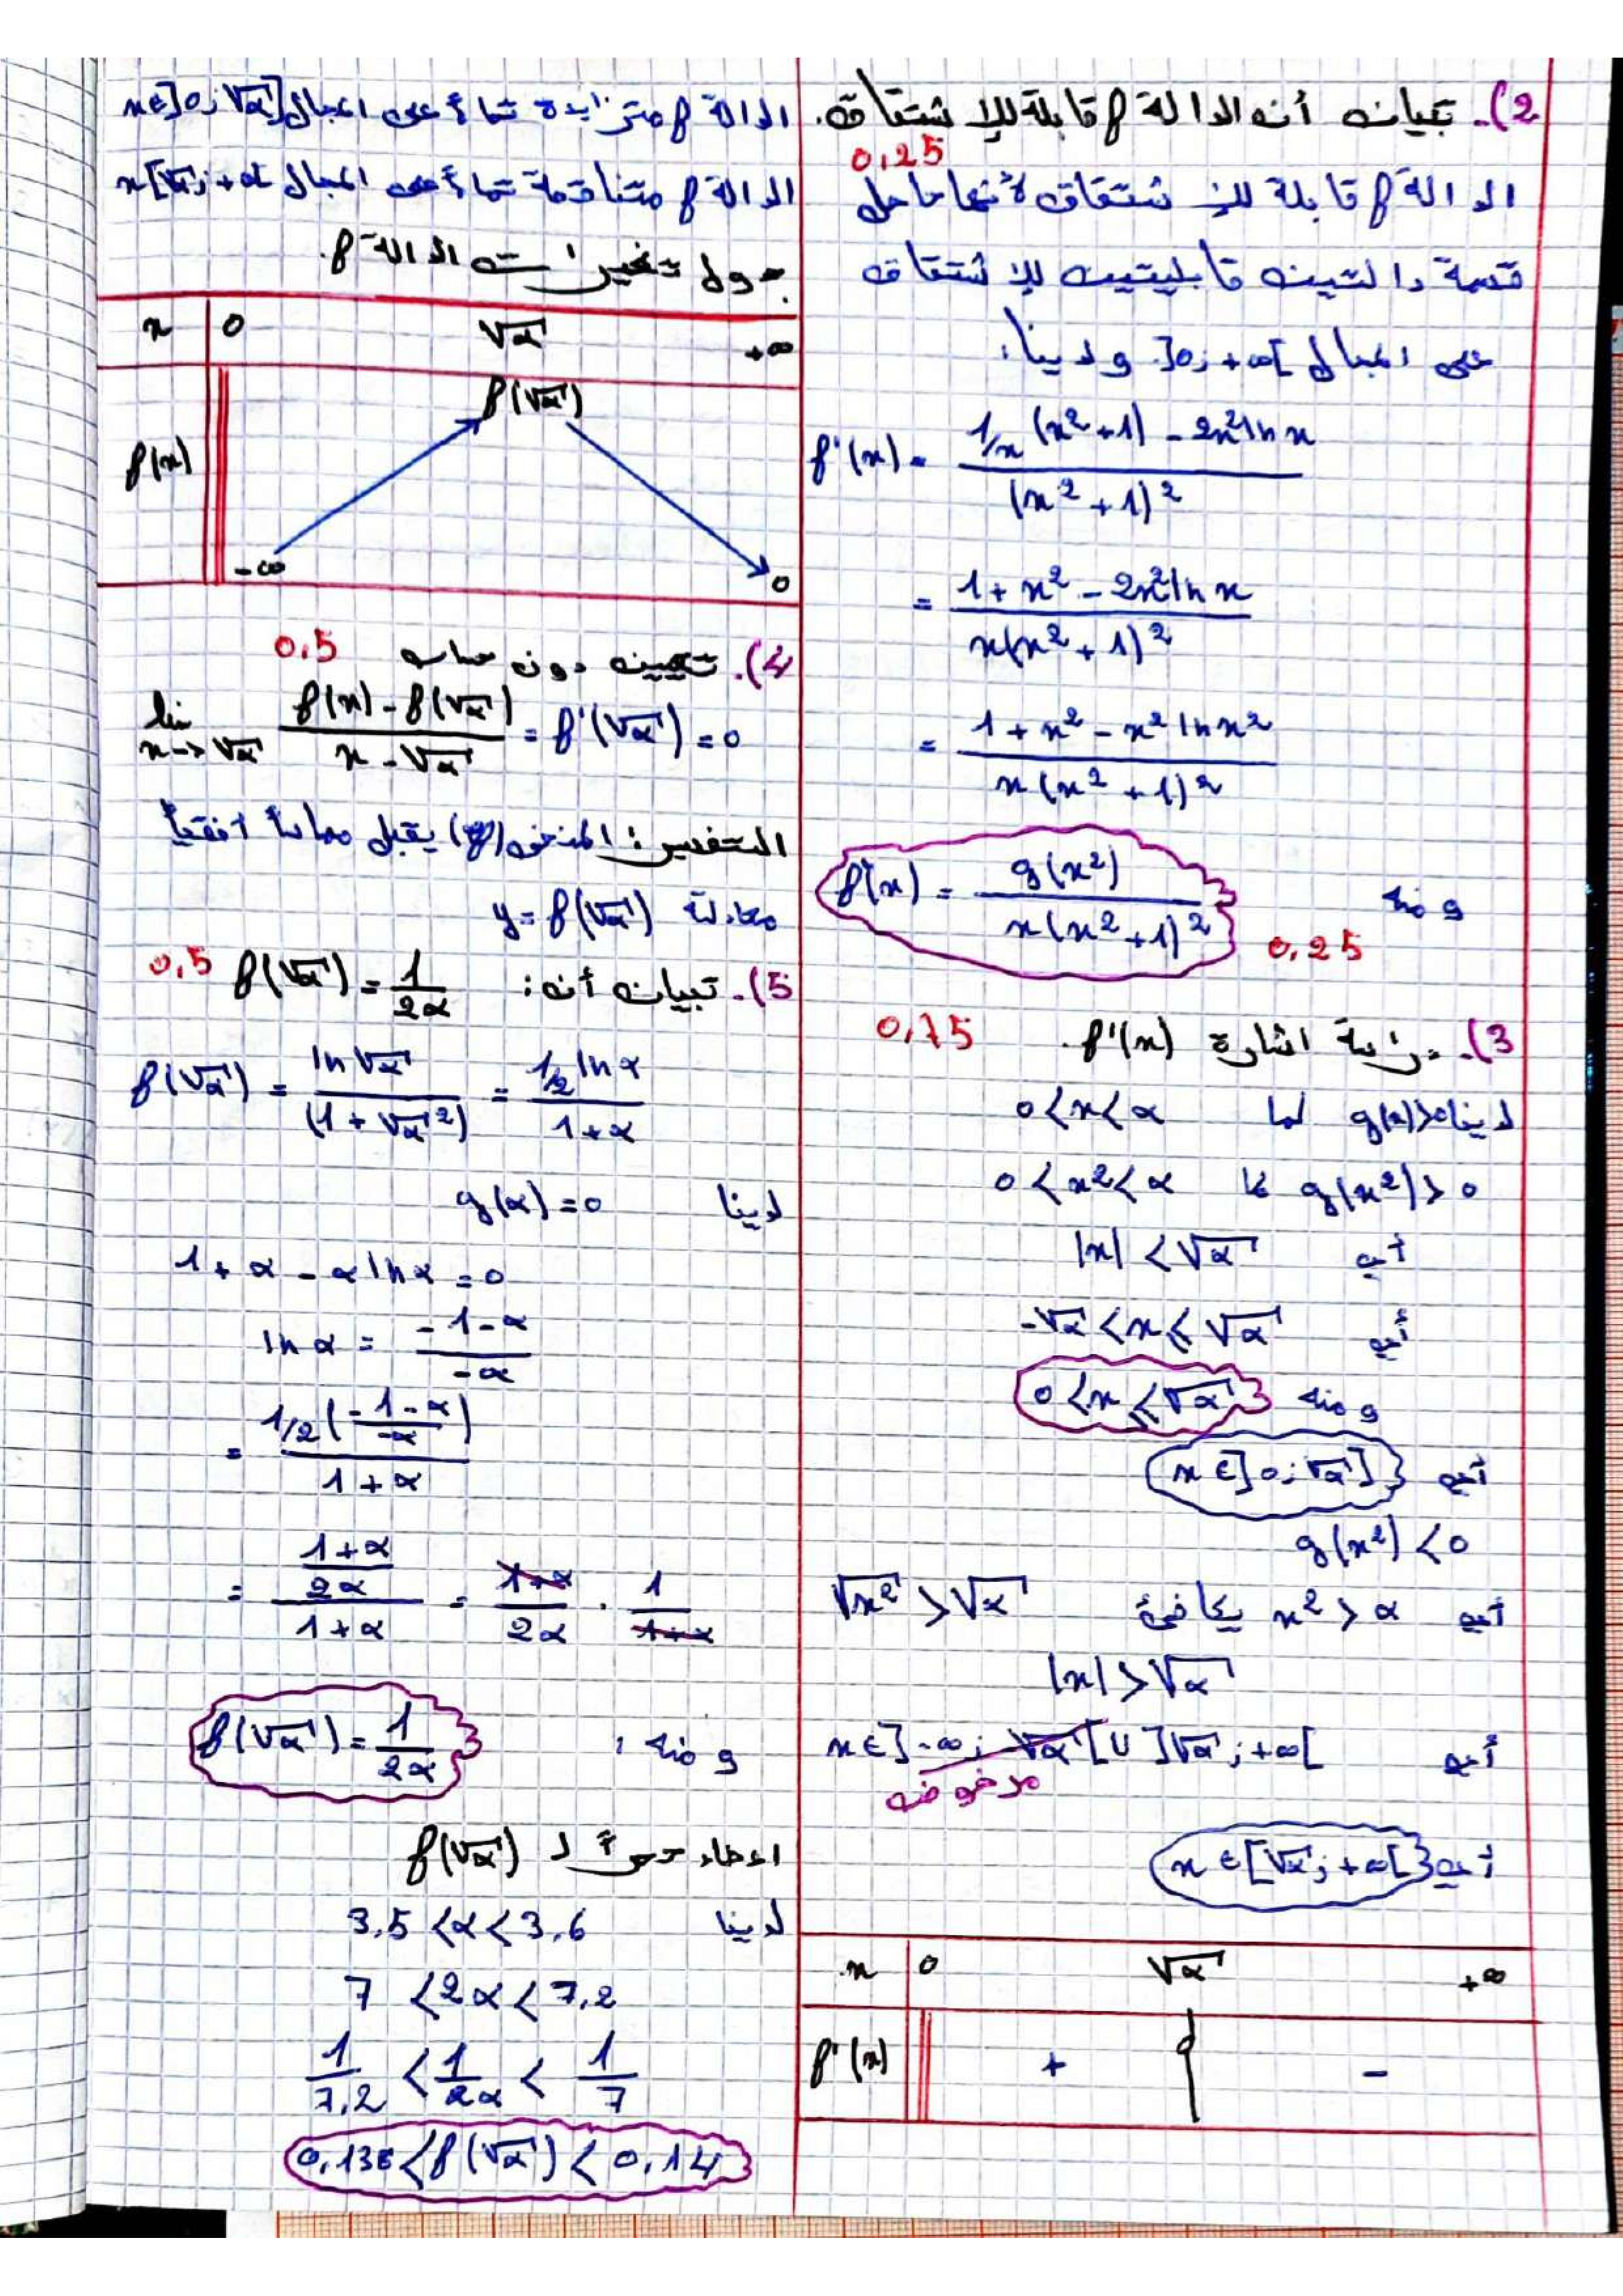 2). تبيان أن الدالة f قابلة للإشتقاق.
0,25
الدالة f قابلة للإشتقاق لأنها حاصل
قسمة دالتين قابليتين للإشتقاق
على المجال ]0; +∞[ ولدينا:
f'(x) = (1/x (x² + 1) - 2x² ln x) / (x² + 1)²
= (1 + x² - 2x² ln x) / x(x² + 1)²
= (1 + x² - x² ln x²) / x(x² + 1)²
ومنه f'(x) = g(x²) / x(x² + 1)²
0,25
3). دراسة اشارة f'(x). 0,75
لدينا g(x)>0 لما 0 < x < α
g(x²) > 0 لما 0 < x² < α
أي |x| < √α
أي -√α < x ⩽ √α
ومنه 0 < x ⩽ √α
أي x ∈ ]0; √α]
g(x²) < 0
أي x² > α يكافئ √x² > √α
|x| > √α
أي x ∈ ]-∞; -√α[ ∪ ]√α; +∞[
مرفوض
أي x ∈ [√α; +∞[
x 0 √α +∞
f'(x) + 0 -
الدالة f متزايدة تماماً على المجال x ∈ ]0; √α]
الدالة f متناقصة تماماً على المجال x [√α; +∞[
جدول تغيرات الدالة f.
x 0 √α +∞
f(√α)
f(x)
-∞ 0
4). تعيين دون حساب 0,5
lim x→√α (f(x) - f(√α)) / (x - √α) = f'(√α) = 0
التفسير: المنحنى (Cf) يقبل مماساً أفقياً
معادلته y = f(√α)
5). تبيان أن: f(√α) = 1/2α 0,5
f(√α) = ln √α / (1 + √α²) = 1/2 ln α / 1 + α
لدينا g(α) = 0
1 + α - α ln α = 0
ln α = -1-α / -α
= 1/2 (-1-α / -α) / 1 + α
= (1+α / 2α) / 1 + α = 1+α / 2α · 1 / 1+α
ومنه: f(√α) = 1/2α
اعطاء حصراً لـ f(√α)
لدينا 3,5 < α < 3,6
7 < 2α < 7,2
1/7,2 < 1/2α < 1/7
0,138 < f(√α) < 0,14